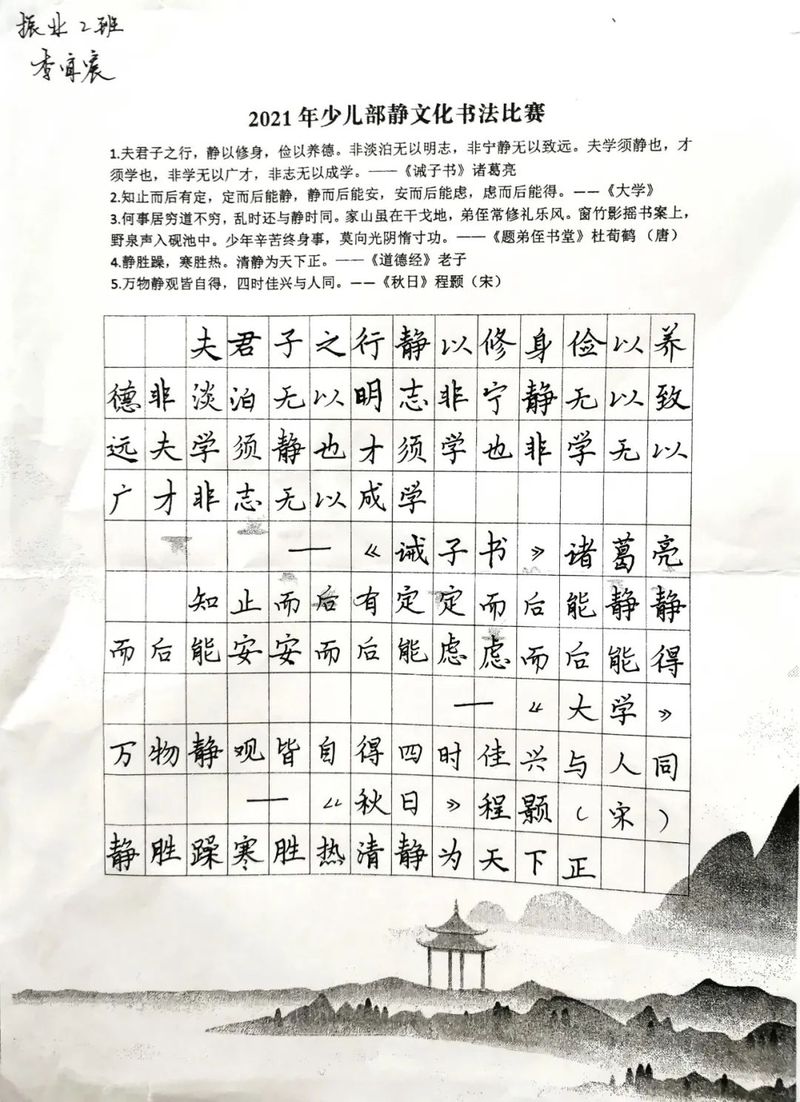 振业2班
李宜宸
2021年少儿部静文化书法比赛
1.夫君子之行，静以修身，俭以养德。非淡泊无以明志，非宁静无以致远。夫学须静也，才
须学也，非学无以广才，非志无以成学。——《诫子书》诸葛亮
2.知止而后有定，定而后能静，静而后能安，安而后能虑，虑而后能得。——《大学》
3.何事居穷道不穷，乱时还与静时同。家山虽在干戈地，弟侄常修礼乐风。窗竹影摇书案上，
野泉声入砚池中。少年辛苦终身事，莫向光阴惰寸功。——《题弟侄书堂》杜荀鹤（唐）
4.静胜躁，寒胜热。清静为天下正。——《道德经》老子
5.万物静观皆自得，四时佳兴与人同。——《秋日》程颢（宋）
夫君子之行静以修身俭以养
德非淡泊无以明志非宁静无以致
远夫学须静也才须学也非学无以
广才非志无以成学
——《诫子书》诸葛亮
知止而后有定定而后能静静
而后能安安而后能虑虑而后能得
——《大学》
万物静观皆自得四时佳兴与人同
——《秋日》程颢（宋）
静胜躁寒胜热清静为天下正